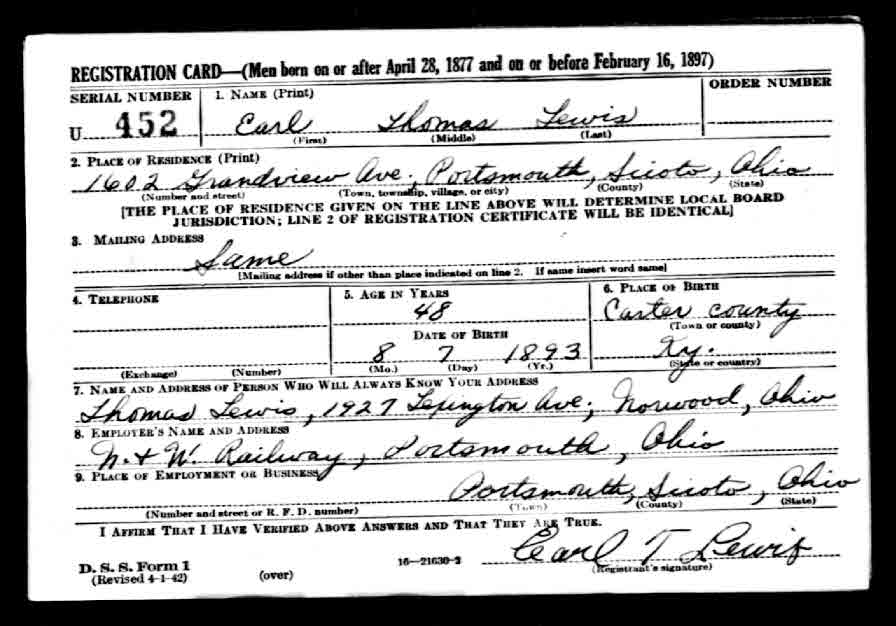 REGISTRATION CARD—(Men born on or after April 28, 1877 and on or before February 16, 1897)
SERIAL NUMBER 1. NAME (Print) ORDER NUMBER
U 452 Earl Thomas Lewis
(First) (Middle) (Last)
2. PLACE OF RESIDENCE (Print)
1602 Grandview Ave., Portsmouth, Sicoto, Ohio
(Number and street) (Town, township, village, or city) (County) (State)
[THE PLACE OF RESIDENCE GIVEN ON THE LINE ABOVE WILL DETERMINE LOCAL BOARD
JURISDICTION; LINE 2 OF REGISTRATION CERTIFICATE WILL BE IDENTICAL]
3. MAILING ADDRESS
Same
[Mailing address if other than place indicated on line 2. If same insert word same]
4. TELEPHONE 5. AGE IN YEARS 6. PLACE OF BIRTH
48 Carter County
(Town or county)
DATE OF BIRTH
8 7 1893 Ky.
(Exchange) (Number) (Mo.) (Day) (Yr.) (State or country)
7. NAME AND ADDRESS OF PERSON WHO WILL ALWAYS KNOW YOUR ADDRESS
Thomas Lewis, 1927 Lexington Ave; Norwood, Ohio
8. EMPLOYER'S NAME AND ADDRESS
N. & W. Railway, Portsmouth, Ohio
9. PLACE OF EMPLOYMENT OR BUSINESS
Portsmouth, Sicoto, Ohio
(Number and street or R. F. D. number) (Town) (County) (State)
I AFFIRM THAT I HAVE VERIFIED ABOVE ANSWERS AND THAT THEY ARE TRUE.
Earl T Lewis
D. S. S. Form 1 16—21630-2 (Registrant's signature)
(Revised 4-1-42) (over)